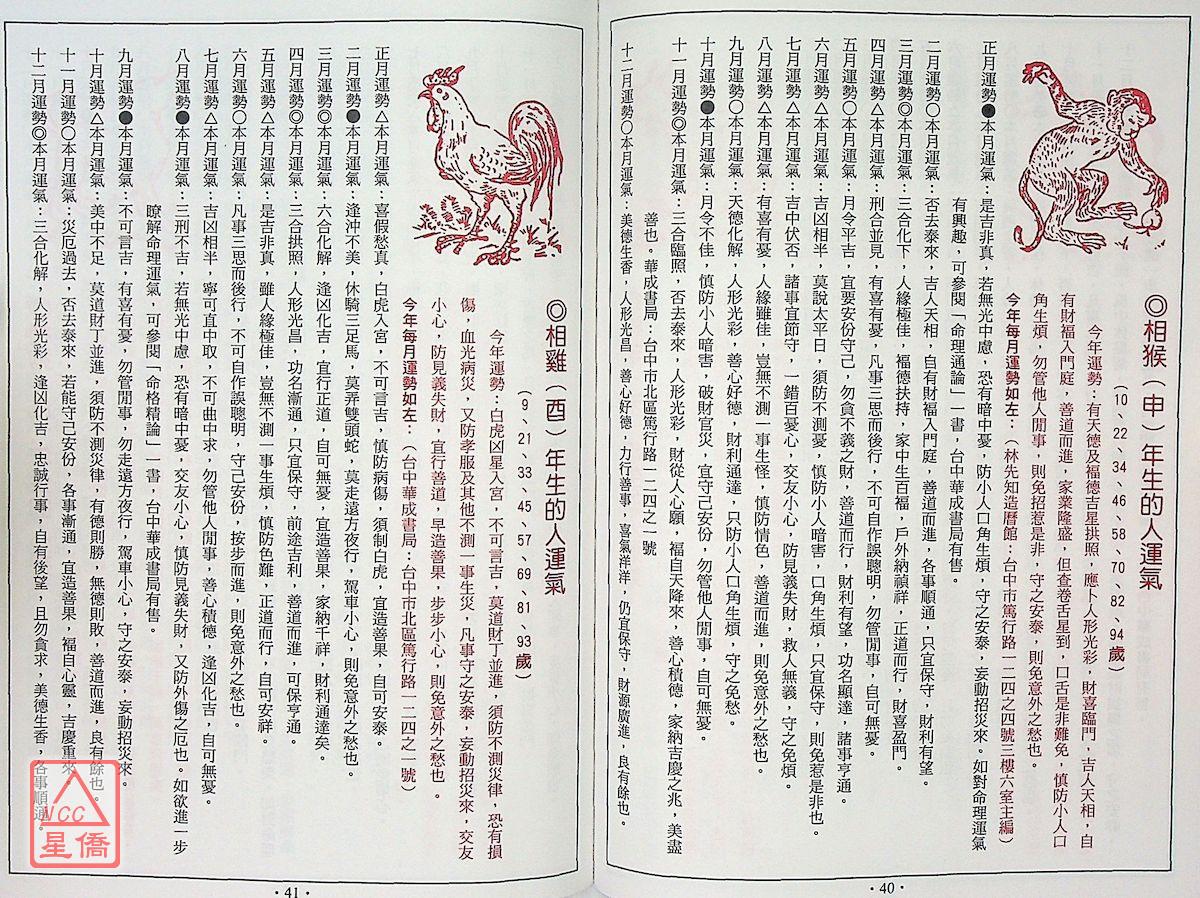 ◎相猴（申）年生的人運氣
（10、22、34、46、58、70、82、94歲）
今年運勢：有天德及福德吉星拱照，應卜人形光彩，財喜臨門，吉人天相，自
有財福入門庭，善道而進，家業隆盛，但查卷舌星到，口舌是非難免，慎防小人口
角生煩，勿管他人閒事，則免招惹是非，守之安泰，則免意外之愁也。
今年每月運勢如左：（林先知造曆館：台中市篤行路一二四之四號三樓六室主編）
正月運勢●本月運氣：是吉非真，若無光中慮，恐有暗中憂，防小人口角生煩，守之安泰，妄動招災來。如對命理運氣
有興趣，可參閱「命理通論」一書，台中華成書局有售。
二月運勢○本月運氣：否去泰來，吉人天相，自有財福入門庭，善道而進，各事順通，只宜保守，財利有望。
三月運勢◎本月運氣：三合化下，人緣極佳，福德扶持，家中生百福，戶外納禎祥，正道而行，財喜盈門。
四月運勢△本月運氣：刑合並見，有喜有憂，凡事三思而後行，不可自作誤聰明，勿管閒事，自可無憂。
五月運勢○本月運氣：月令平吉，宜要安份守己，勿貪不義之財，善道而行，財利有望，功名顯達，諸事亨通。
六月運勢△本月運氣：吉凶相半，莫說太平日，須防不測憂，慎防小人暗害，口角生煩，只宜保守，則免惹是非也。
七月運勢△本月運氣：吉中伏否，諸事宜節守，一錯百憂心，交友小心，防見義失財，救人無義，守之免煩。
八月運勢△本月運氣：有喜有憂，人緣雖佳，豈無不測一事生怪，慎防情色，善道而進，則免意外之愁也。
九月運勢○本月運氣：天德化解，人形光彩，善心好德，財利通達，只防小人口角生煩，守之免愁。
十月運勢●本月運氣：月令不佳，慎防小人暗害，破財官災，宜守己安份，勿管他人閒事，自可無憂。
十一月運勢◎本月運氣：三合臨照，否去泰來，人形光彩，財從人心願，福自天降來，善心積德，家納吉慶之兆，美盡
善也。華成書局：台中市北區篤行路一二四之一號
十二月運勢○本月運氣：美德生香，人形光昌，善心好德，力行善事，喜氣洋洋，仍宜保守，財源廣進，良有餘也。
·40·
◎相雞（酉）年生的人運氣
（9、21、33、45、57、69、81、93歲）
今年運勢：白虎凶星入宮，不可言吉，莫道財丁並進，須防不測災律，恐有損
傷，血光病災，又防孝服及其他不測一事生災，凡事守之安泰，妄動招災來，交友
小心，防見義失財，宜行善道，早造善果，步步小心，則免意外之愁也。
今年每月運勢如左：（台中華成書局：台中市北區篤行路一二四之一號）
正月運勢△本月運氣：喜假愁真，白虎入宮，不可言吉，慎防病傷，須制白虎，宜造善果，自可安泰。
二月運勢●本月運氣：逢沖不美，休騎三足馬，莫弄雙頭蛇，莫走遠方夜行，駕車小心，則免意外之愁也。
三月運勢◎本月運氣：六合化解，逢凶化吉，宜行正道，自可無憂，宜造善果，家納千祥，財利通達矣。
四月運勢◎本月運氣：三合拱照，人形光昌，功名漸通，只宜保守，前途吉利，善道而進，可保亨通。
五月運勢△本月運氣：是吉非真，雖人緣極佳，豈無不測一事生煩，慎防色難，正道而行，自可安祥。
六月運勢○本月運氣：凡事三思而後行，不可自作誤聰明，守己安份，按步而進，則免意外之愁也。
七月運勢△本月運氣：吉凶相半，寧可直中取，不可曲中求，勿管他人閒事，善心積德，逢凶化吉，自可無憂。
八月運勢●本月運氣：三刑不吉，若無光中慮，恐有暗中憂，交友小心，慎防見義失財，又防外傷之厄也。如欲進一步
瞭解命理運氣，可參閱「命格精論」一書，台中華成書局有售。
九月運勢●本月運氣：不可言吉，有喜有憂，勿管閒事，勿走遠方夜行，駕車小心，守之安泰，妄動招災來。
十月運勢△本月運氣：美中不足，莫道財丁並進，須防不測災律，有德則勝，無德則敗，善道而進，良有餘也。
十一月運勢○本月運氣：災厄過去，否去泰來，若能守己安份，各事漸通，宜造善果，福自心靈，吉慶重來。
十二月運勢◎本月運氣：三合化解，人形光彩，逢凶化吉，忠誠行事，自有後望，且勿貪求，美德生香，各事順通。
·41·
NCC
星僑